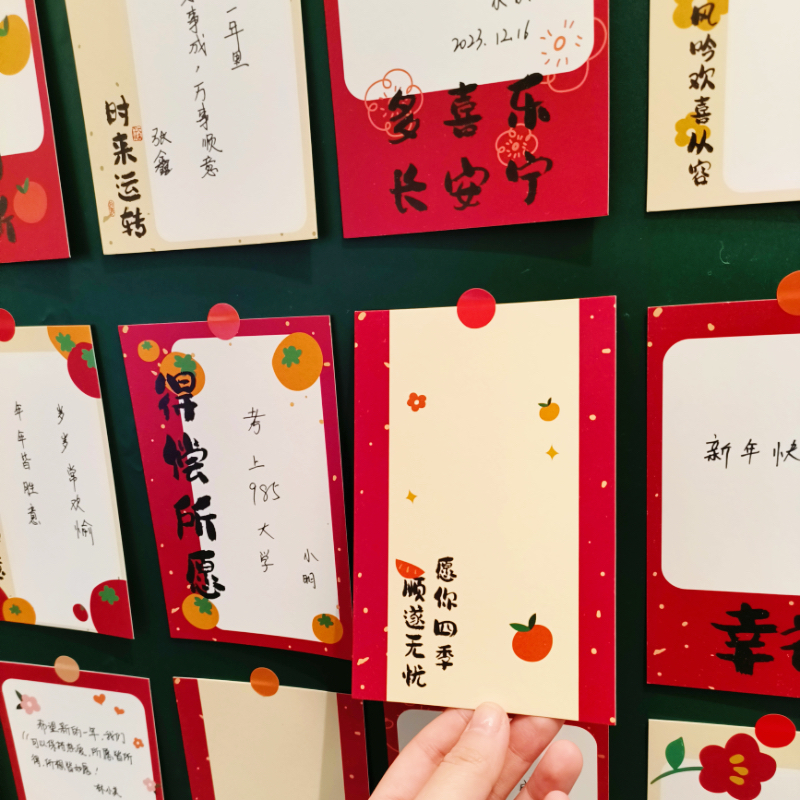 一年里
事成，万事顺意
张鑫
时来运转
2023.12.16
多喜乐
长安宁
风吟欢喜从容
岁岁常欢愉
年年皆胜意
得偿所愿
考上985大学
小明
愿你四季
顺遂无忧
新年快
幸
希望新的一年，我们
可以保持热爱，所愿皆所
得，所愿皆如愿！